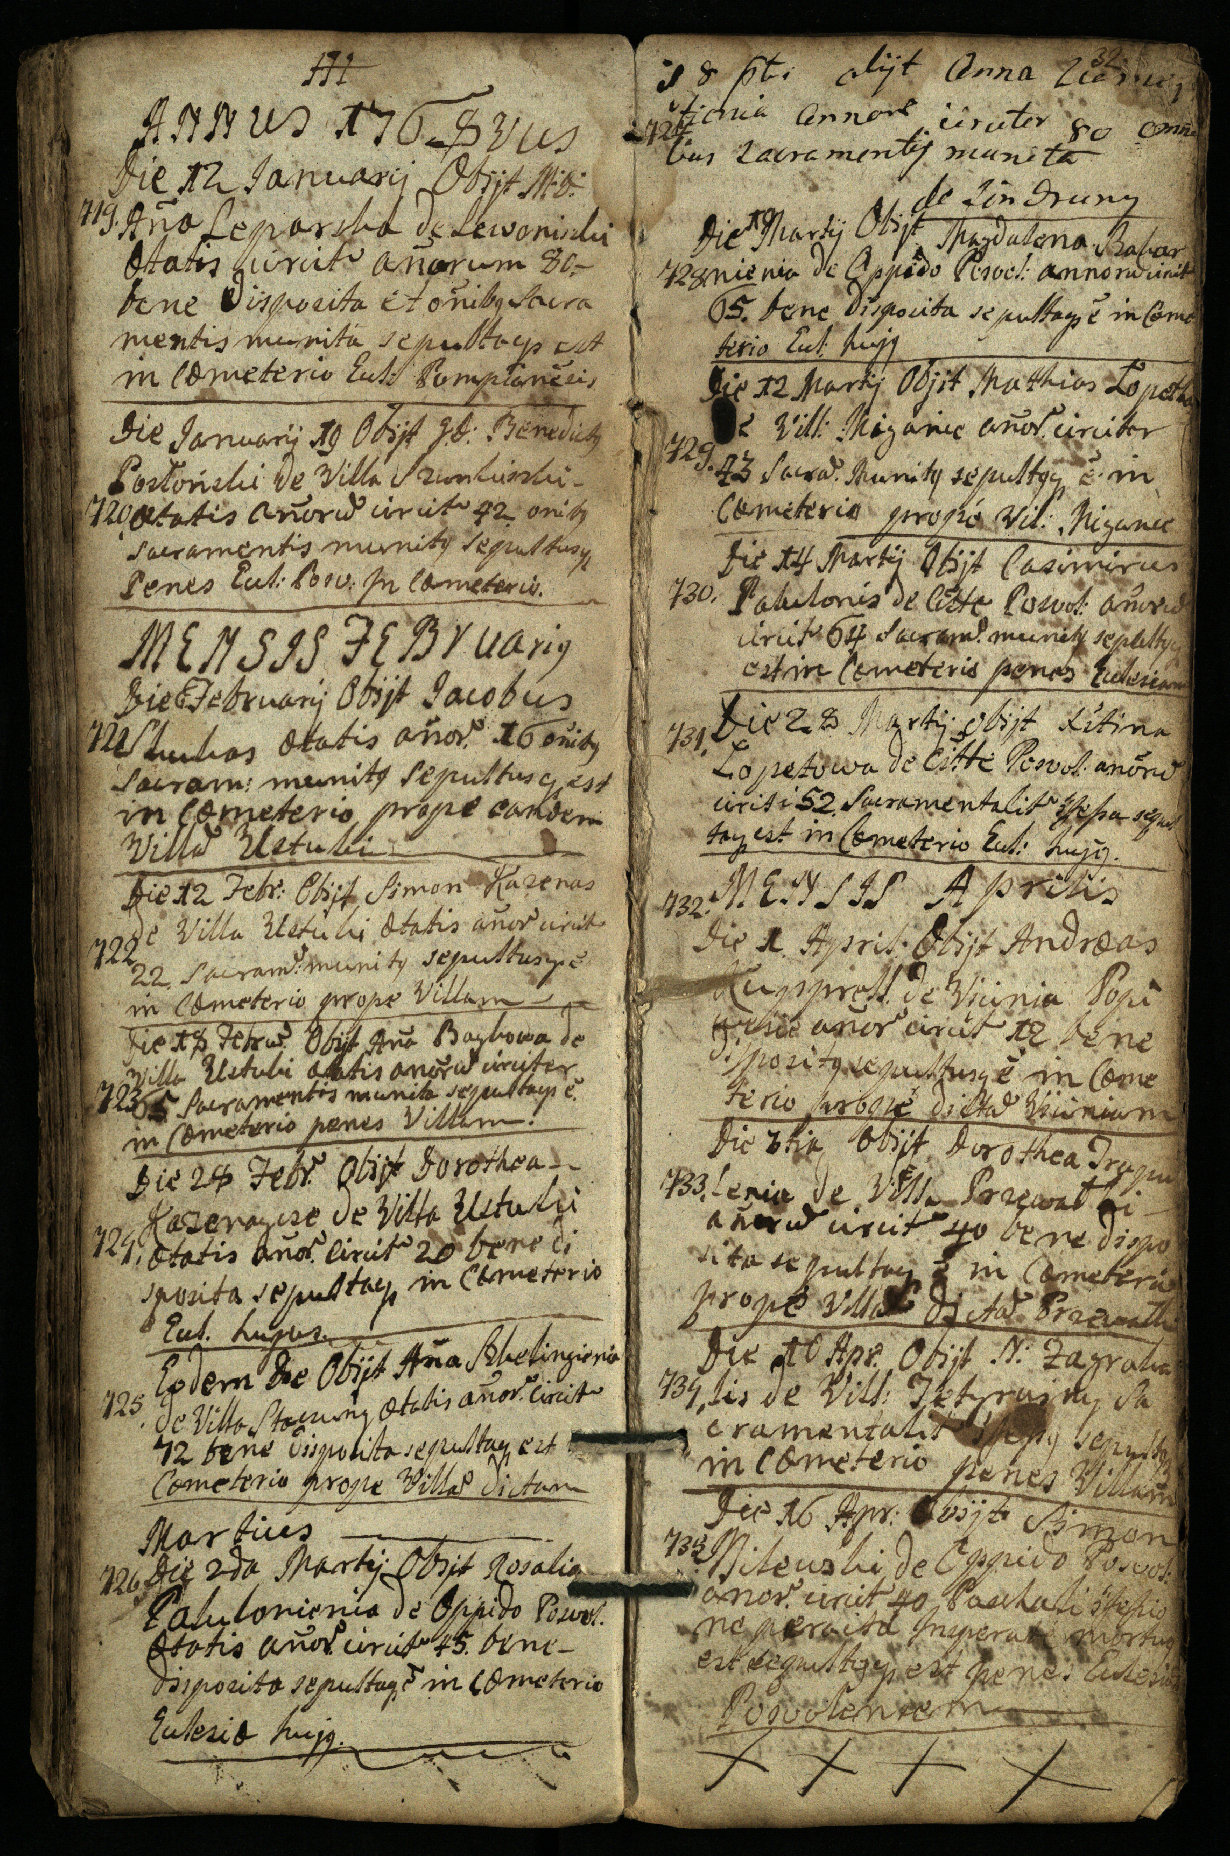 111
ANNUS 1768vus
Die 12 Januarij Obijt M: D:
719. Aña Leparska de Lewoniszki
Ætatis circitr añorum 80-
bene disposita et oñibq Sacra
mentis munita sepultaqȝ est
in Cœmeterio Eccl: Pompianẽsis
Die Januarij 19 Obijt Gd: Benedictq
Postoński de Villa
720 ætatis añorũ circitr 42 onibq
sacramentis munitq sepultusqȝ
Penes Eccl: Posv: in Cœmeterio.
MENSIS FEBruarij
Die 6 Februarij Obijt Jacobus
721 Skukas ætatis añor. 16 oñibq
sacram: munitq sepultusqȝ est
in Cœmeterio prope eandem
Villã Ustuki
Die 12 Febr: Obijt Simon Kazenas
de Villa Ustuki ætatis añor circitr
722
22 Sacram: munitq sepultusqȝ ẽ
in Cœmeterio prope Villam
Die 18 Febru. Obijt Aña Baybowa de
Villa Ustuki ætatis añorũ circiter
723 65 Sacramentis munita sepultaqȝ ẽ
in Cœmeterio penes Villam.
Die 28 Febr. Obijt Dorothea
Kazenayce de Villa Ustuki
724. ætatis añor. circitr 20 bene di
sposita sepultaqȝ in Cœmeterio
Eccl. hujus.
Eodem Die Obijt Aña
725. de Villa Staczuny ætatis añor. circitr
42 bene disposita sepultaqȝ est
Cœmeterio prope Villã dictam
Martius
726 Die 2da Martij Obijt Rosalia
Palulonienia de Oppido Posvol:
Ætatis añor. circitr 45. bene
disposita sepultaqȝ ẽ in Cœmeterio
Eclesiæ hujq.
32
8 obijt Anna
727 annor circiter 80 omni
bus Sacramentis munita
de Jindruny
Die 10 Martij Obijt Magdalena Babar
728 nienia de Oppido Posvol: annorũ circitr
65. bene disposita sepultaqȝ ẽ in Cœme
terio Eccl: hujq
Die 12 Martij Obijt Mathias Lopetha
de Vill: Miganie añor. circiter
729.
43 Sacra. Munitq sepultqqȝ ẽ in
Cœmeterio prope Vil: Miganie
Die 14 Martij Obijt Casimirus
730. Palulonis de Citte Posvol: añorũ
circitr 64 Sacram. munitq sepultqqȝ
est in Cœmeterio penes Eclesiam
731. Die 28 Martij obijt Xstina
Lopetowa de Citte Posvol: añorũ
circiti 52 Sacramentalitr sepul
taqȝ est in Cœmeterio Eccl: hujq.
732. MENSIS Aprilis
Die 1 April: Obijt Andræas
de Vicinia Popi
añor circitr 12 bene
dispositq sepultusqȝ ẽ in Cœme
terio prope dictã Viciniam
Die 3tia Obijt Dorothea Dragu
733. lenia de Villa Przewalki
añorũ circitr 40 bene dispo
sita sepultaqȝ ẽ in Cœmeterio
prope Villã Dictã Przewalki
Die 10 Apr. Obijt N: Zagraba
734. lis de Vill:
cramentalitr sepultqqȝ
in Cœmeterio penes Villam
Die 16 Apr: Obijt Simon
735 Milewski de Oppido Posvol:
añor. circitr 40 Paschali
ne peracta Insperate mortuq
est sepultqqȝ est penes Eclesiã
Posvolensem